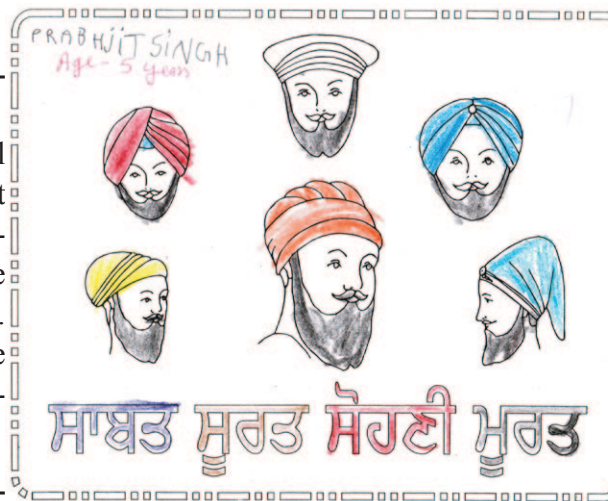 PRABHJIT SINGH
Age - 5 years
l
t
-
e
.
e
-
ਸਾਬਤ ਸੂਰਤ ਸੋਹਣੀ ਮੂਰਤ